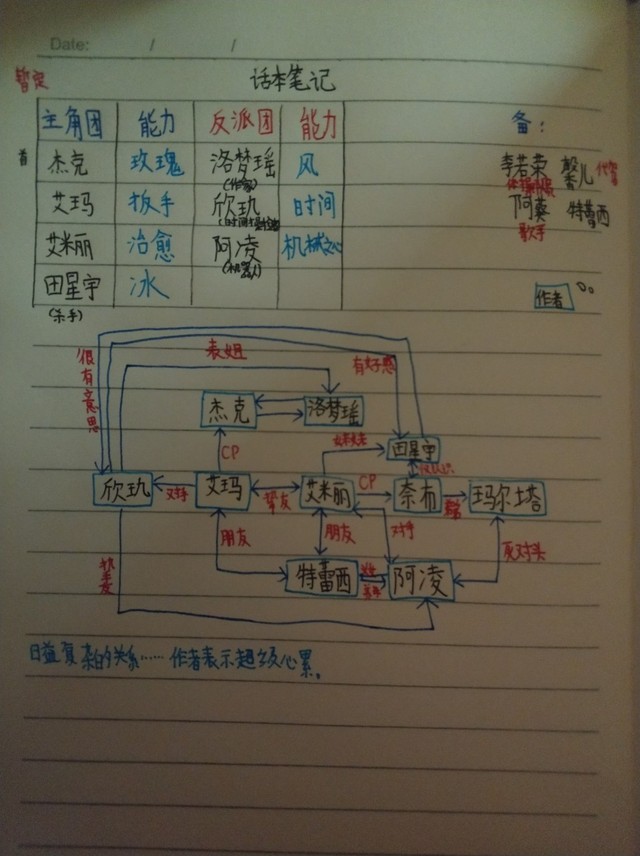 Date: / /
暂定
话本笔记
主角团 能力 反派团 能力
备：
首 杰克 玫瑰 洛梦瑶 风
(作家)
李若荣 馨儿
艾玛 扳手 欣玖 时间
阿葵 特蕾西
歌手
艾米丽 治愈 阿凌 机械心
(机器人)
田星宇 冰
(杀手)
作者
很有意思
表姐
有好感
杰克 洛梦瑶
CP
田星宇
欣玖 对手 艾玛 帮友 艾米丽 CP 奈布 玛尔塔
朋友 朋友 对手
死对头
特蕾西 阿凌
日益复杂的关系……作者表示超级心累。